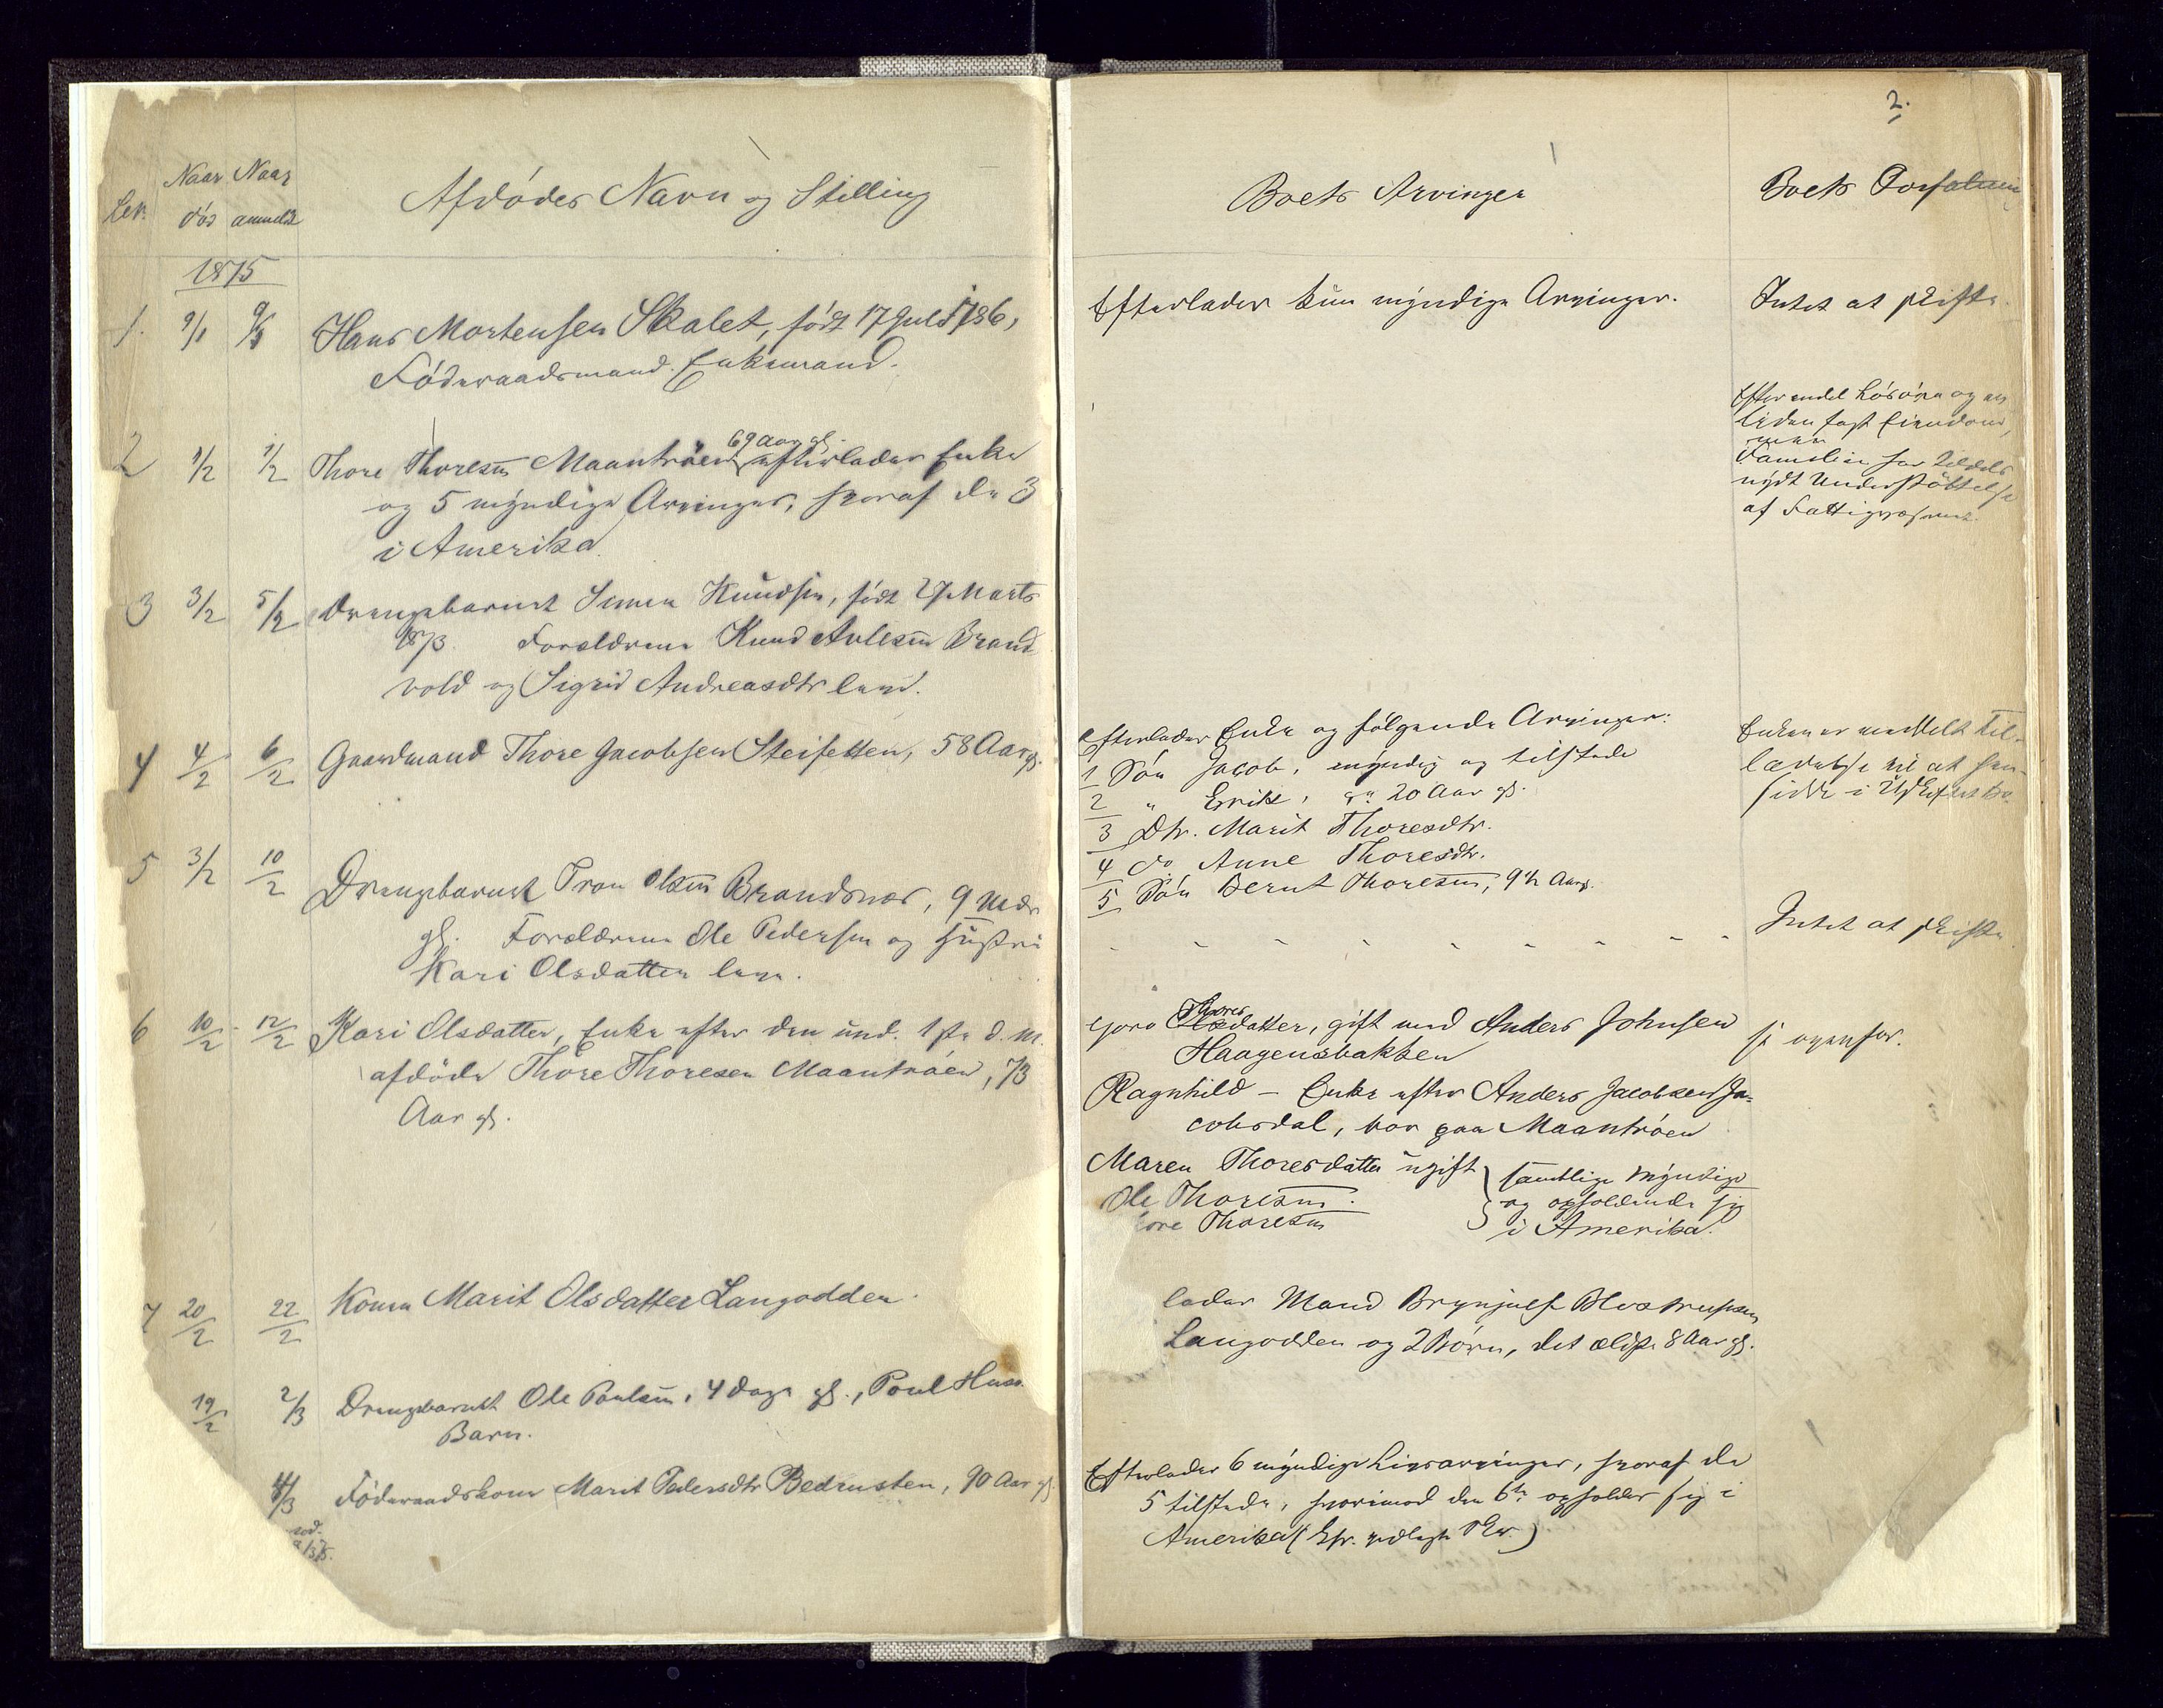 Naar Naar
død anmeldt
Afdødes Navn og Stilling
1875
1. 9/1 9/1 Hans Mortensen Skalet, født 17 Juli 1786,
Føderaadsmand. Enkemand.
2 1/2 1/2 Thore Thoresen Maantrøen, 69 Aar gl. efterlader Enke
og 5 myndige Arvinger, hvoraf de 3
i Amerika
3 3/2 5/2 Drengebarnet Simen Knudsen, født 27 Marts
1873. Forældrene Knud Avlesen Brand
vold og Sigrid Andreasdtr leve.
4 4/2 6/2 Gaardmand Thore Jacobsen Steifetten, 58 Aar gl.
5 3/2 10/2 Drengebarnet Tron Olsen Brandsnes, 9 Mdr
gl. Forældrene Ole Pedersen og Hustru
Kari Olsdatter leve.
6 10/2 12/2 Kari Olsdatter, Enke efter den und. 1ste d. M.
afdøde Thore Thoresen Maantrøen, 73
Aar gl.
7 20/2 22/2 Konen Marit Olsdatter Langodden.
19/2 2/3 Drengebarnet Ole Poulsen, 4 Dage gl., Poul
Barn.
Føderaadskone Marit Pedersdtr 90 Aar gl
2.
Boets Arvinger
Boets
Efterlader kun myndige Arvinger.
Intet at skifte.
Efter endel Løsøre og en
liden fast Eiendom,
men
Familien har tildels
nydt Understøttelse
af Fattigvæsenet.
Efterlader Enke og følgende Arvinger:
1 Søn Jacob, myndig og tilstede
2 " Errik, 20 Aar gl.
3 Dtr. Marit Thoresdtr.
4 do Anne Thoresdtr.
5 Søn Bernt Thoresen, 9½ Aar gl.
Enken er meddelt Til-
ladelse til at hen-
sidde i uskiftet Bo.
Intet at skifte
Goro Thoresdatter, gift med Anders Johnsen
Haagensbakken
Ragnhild - Enke efter Anders Jacobsen Ja-
cobsdal, bor paa Maantrøen
Maren Thoresdatter ugift
Ole Thoresen.
Thoresen
samtlige myndige
og opholdende sig
i Amerika.
se ovenfor.
lader Mand Brynjulf
Langodden og 2 Børn, det ældste 8 Aar gl.
Efterlader 6 myndige Livsarvinger, hvoraf de
5 tilstede, hvorimod den 6te opholder sig i
Amerika